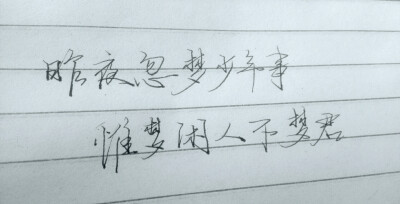 昨夜忽梦少年事
惟梦闲人不梦君